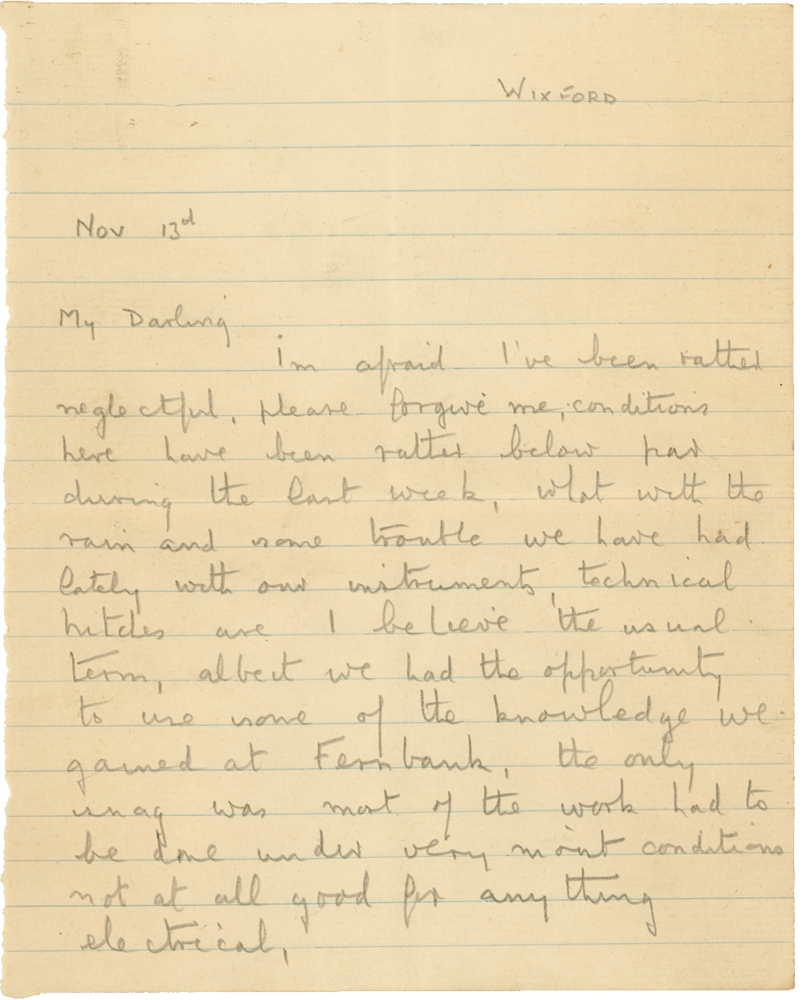 WIXFORD
Nov 13rd
My Darling
Im afraid I've been rather
neglectful, please forgive me, conditions
here have been rather below par
during the last week, what with the
rain and some trouble we have had
lately with our instruments, technical
hitches are I believe the usual
term, albeit we had the opportunity
to use some of the knowledge we
gained at Fernbank, the only
snag was most of the work had to
be done under very moist conditions
not at all good for anything
electrical,